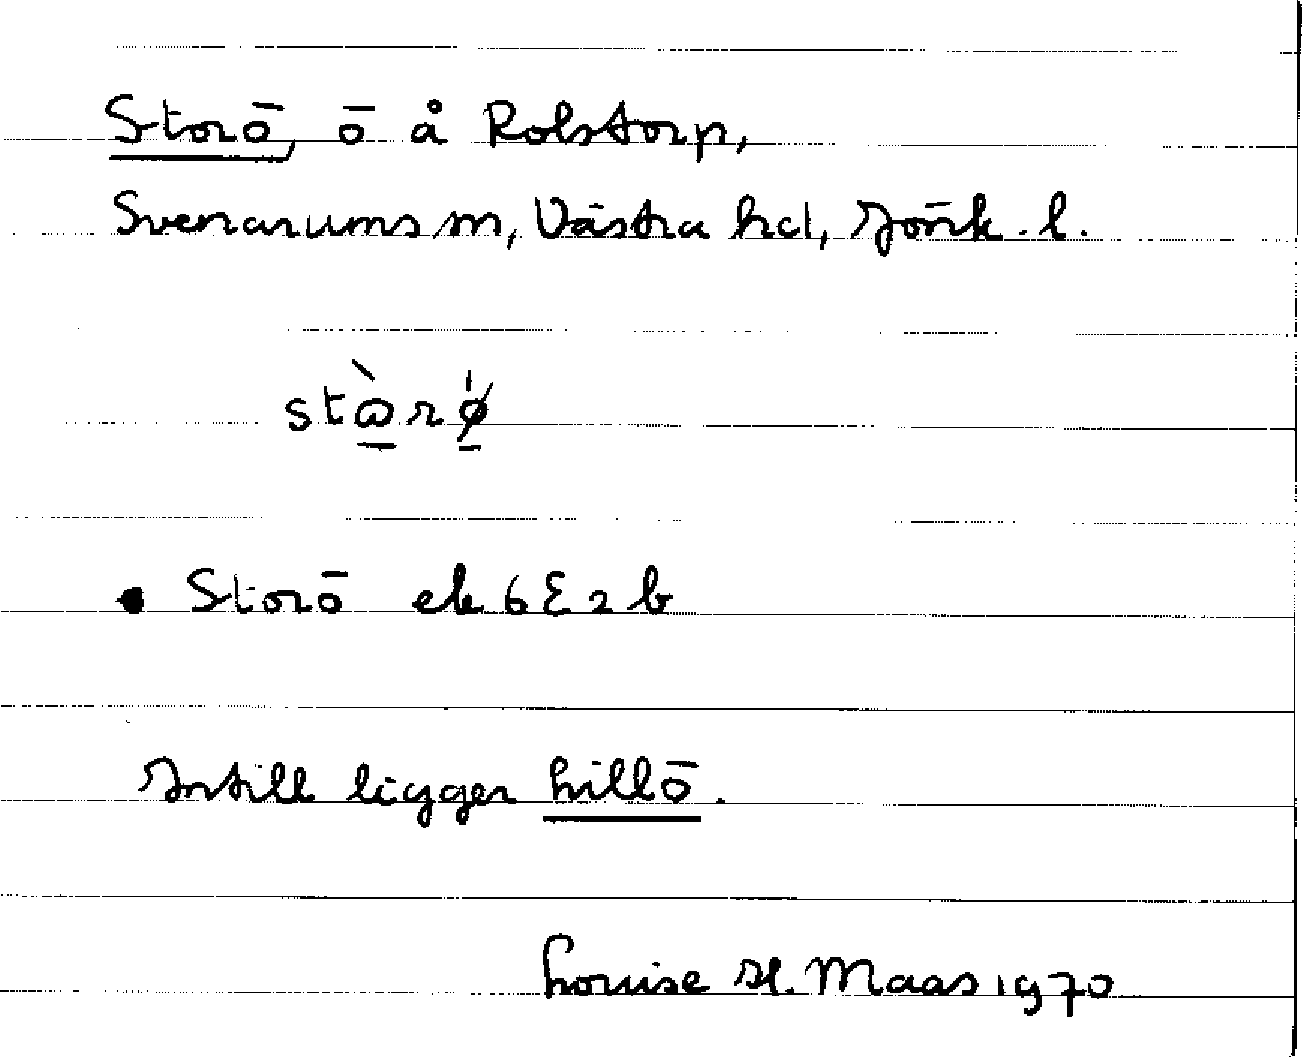 Storö, ö å Rolstorp,
Svenarums sn, Västra hd, Jönk. l.
stὼrø̍
Storö ek 6E2b
Intill ligger Lillö.
Louise H. Maas 1970